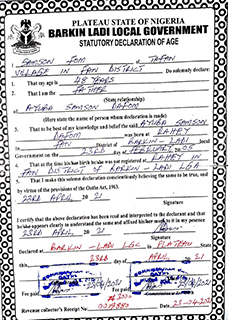 PLATEAU STATE OF NIGERIA
BARKIN LADI LOCAL GOVERNMENT
STATUTORY DECLARATION OF AGE
I SAMSON JOM of TAFAN
VILLAGE IN FAN DISTRICT Do solemnly declare:
That my age is 48 YEARS
2. That I am the FATHER
(State relationship)
of AYUBA SAMSON DAFOM
(Here state the name of person whom declaration is made)
3. That to be best of my knowledge and belief the said AYUBA SAMSON
DAFOM was born at RAHEY
in FAN District of BARKIN-LADI local
Government on the 23RD day of FEBRUARY 2005
4. That at the time his/her birth he/she was not registered at RAHEY IN
FAN DISTRICT OF BARKIN-LADI LGA
5. That I make this solemn declaration conscientiously believing the same to be true, and
by virtue of the provisions of the Oaths Act, 1963.
23RD APRIL 2021
I certify that the above declaration has been read and interpreted to the declarant and that
he appears clearly to understand the same and affixed his/her mark to it in my presence
23RD APRIL 2021
Declared at BARKIN-LADI LGC in PLATEAU State
this 23RD day of APRIL 2021
Fee paid
Fee paid
Revenue collector's Receipt No. Date 23-04-2021